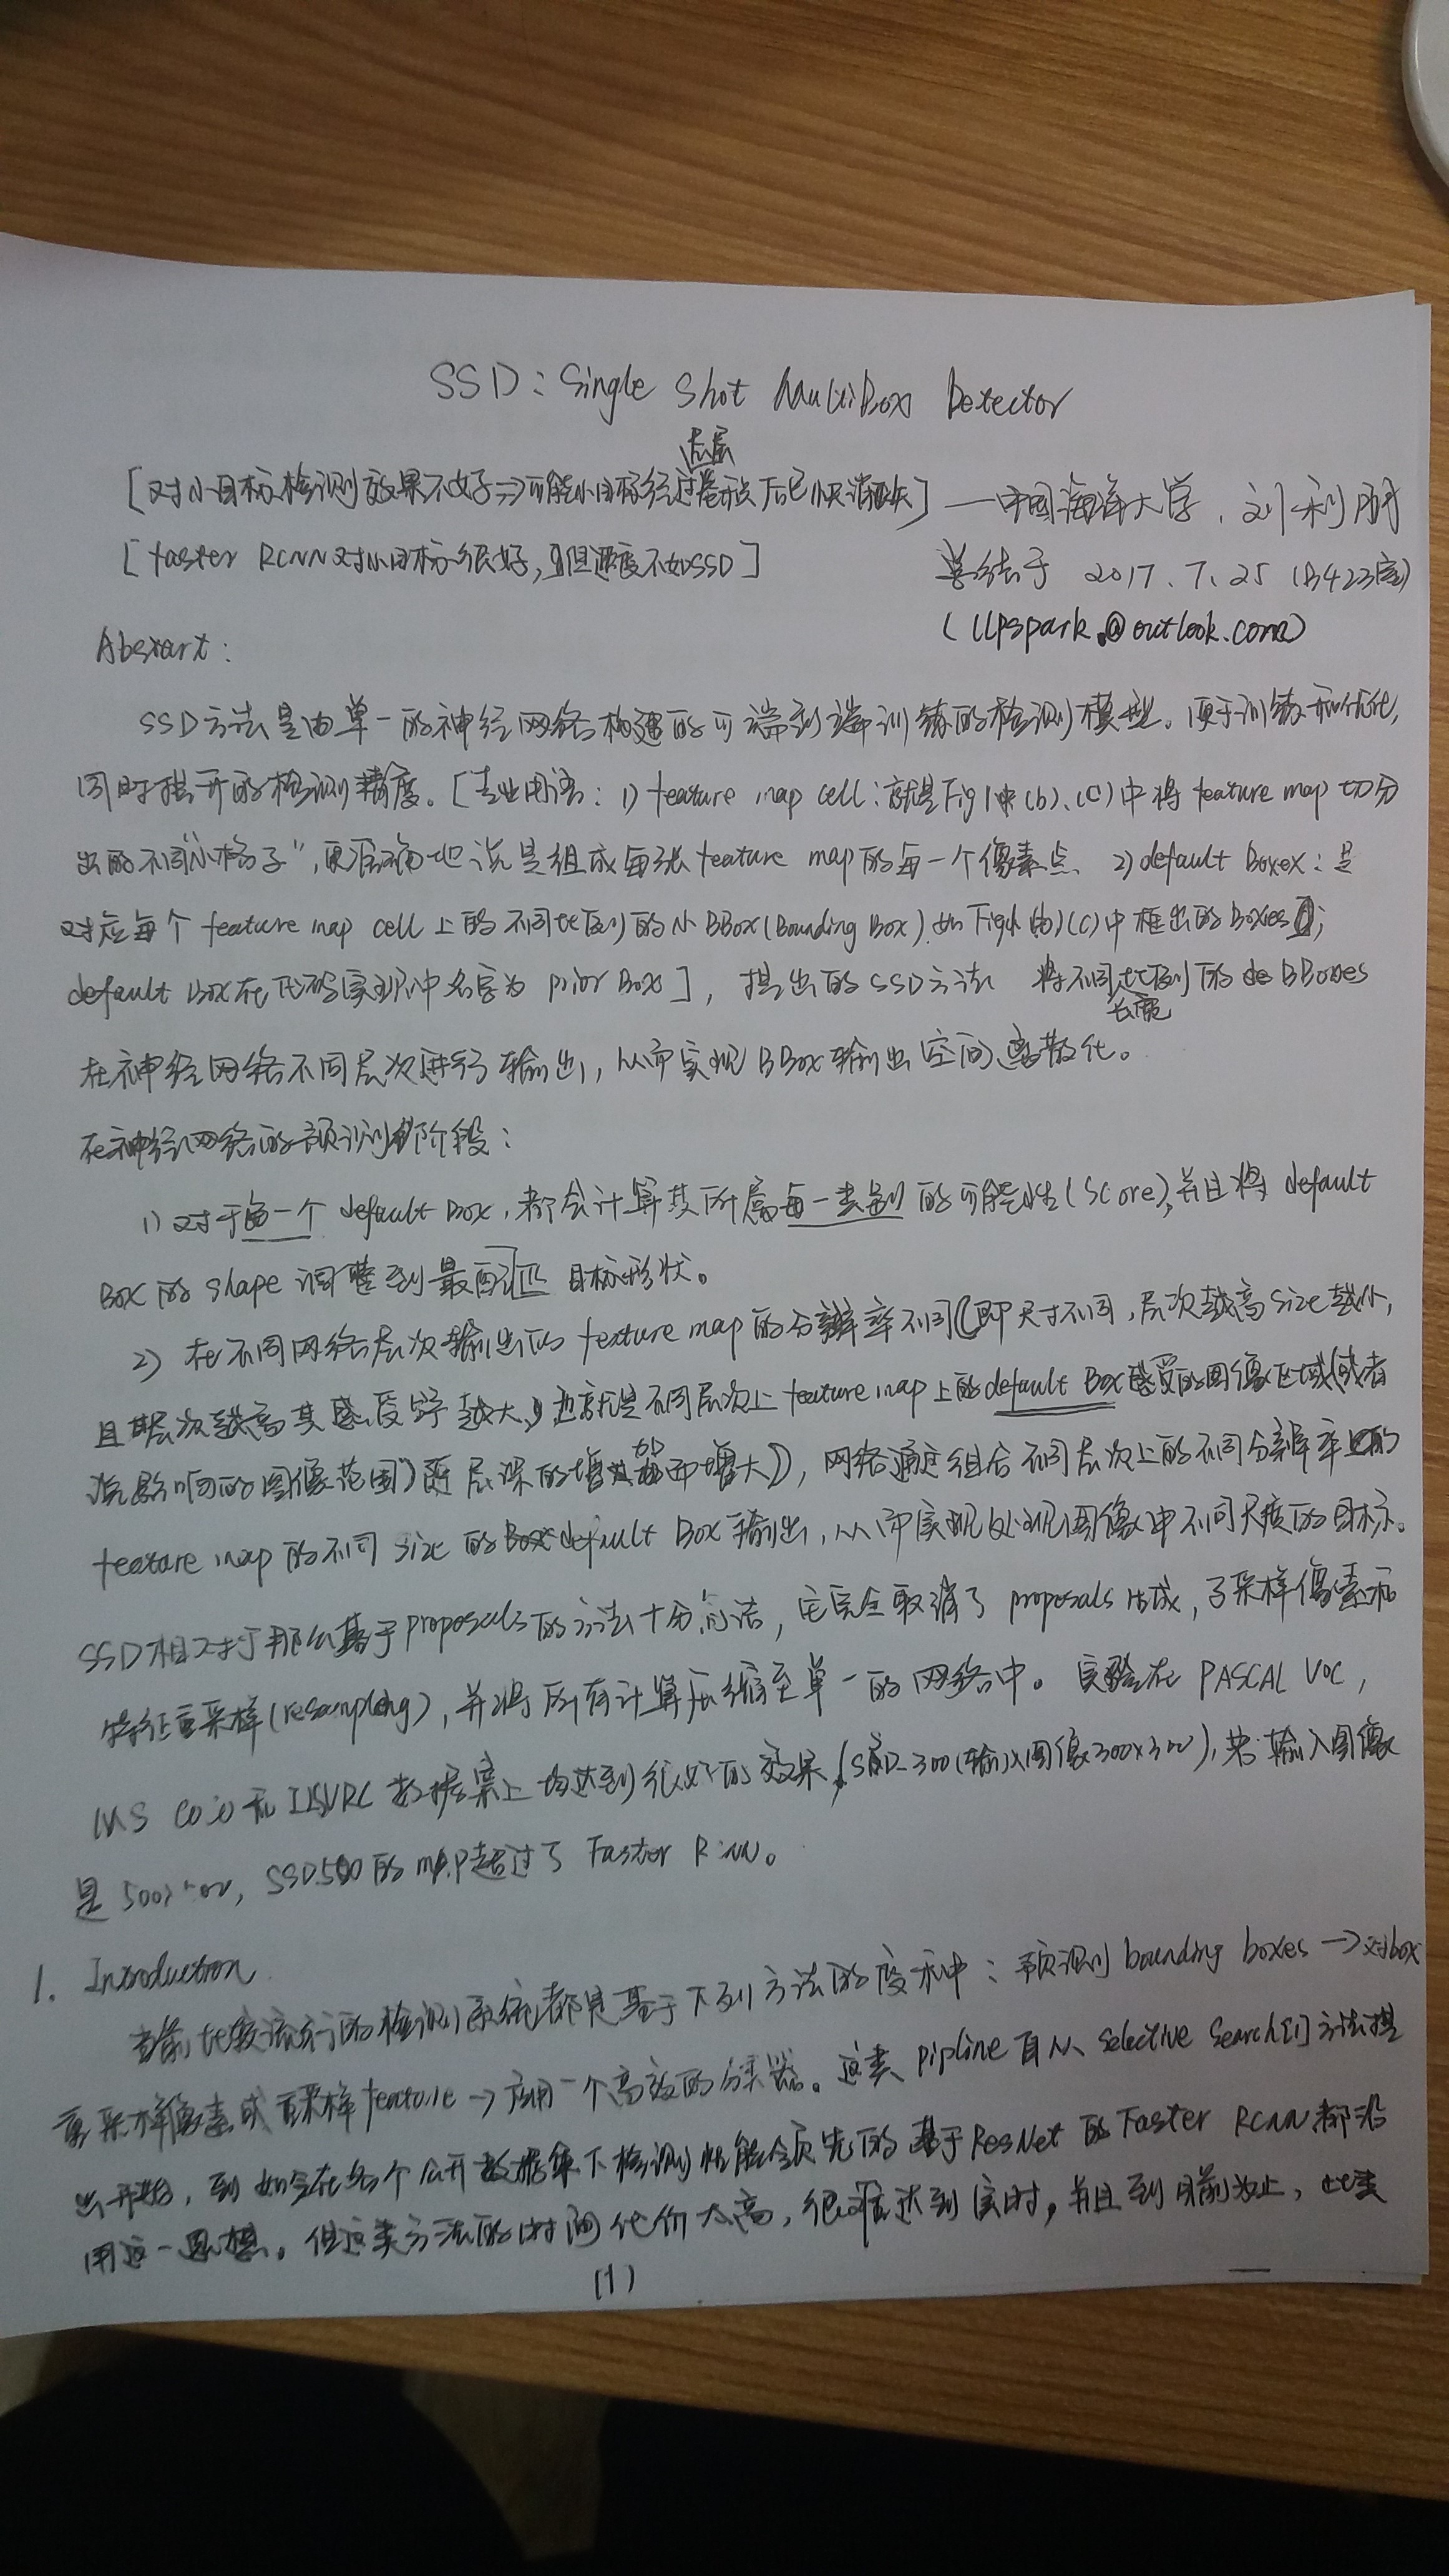 SSD: Single Shot MultiBox Detector
底层
[对小目标检测效果不好⇒可能小目标经过卷积后已快消失] —中国海洋大学, 刘利朋
[Faster RCNN对小目标很好, 但速度不如SSD] 总结于 2017.7.25 (B423室)
(llpspark@outlook.com)
Abstart:
SSD方法是由单一的神经网络构建的可端到端训练的检测模型。便于训练和优化,
同时提升的检测精度。[专业用语: 1) feature map cell: 就是Fig1中(b)、(c)中将feature map切分
出的不同"小格子", 更准确地说是组成每张feature map的每一个像素点、 2) default Boxex: 是
对应每个 feature map cell 上的不同比例的小BBox(Bounding Box).如Fig1 (b)(c)中框出的Boxes;
default Box在代码实现中名字为 prior Box], 提出的SSD方法 将不同比例的 BBoxes
长宽
在神经网络不同层次进行输出, 从而实现BBox输出空间离散化。
在神经网络的预测阶段:
1) 对于每一个 default Box, 都会计算其所属每一类别的可能性(Score), 并且将 default
Box的 shape 调整到最匹配目标形状。
2) 在不同网络层次输出的 feature map的分辨率不同(即尺寸不同, 层次越高size越小,
且层次越高其感受野越大, 也就是不同层次上feature map上的default Box感受的图像区域(或者
说影响的图像范围)随层深的增加而增大), 网络通过组合不同层次上的不同分辨率的
feature map的不同 size 的default Box输出, 从而实现处理图像中不同尺度的目标。
SSD相对于那些基于proposals的方法十分简洁, 它完全取消了 proposals 生成, 子采样像素和
特征重采样(resampling), 并将所有计算压缩至单一的网络中。实验在 PASCAL VOC,
MS COCO和ILSVRC 数据集上均达到很好的效果(SSD-300(输入图像300x300), 若输入图像
是 500x500, SSD500的mAP超过了 Faster RCNN。
1. Introduction
当前比较流行的检测系统都是基于下列方法的变种: 预测bounding boxes → 对box
重采样像素或重采样feature → 应用一个高效的分类器。这类 pipline 自从 Selective Search[1]方法提
出开始, 到如今在各个公开数据集下检测性能领先的基于ResNet的Faster RCNN都沿
用这一思想。但这类方法的时间代价太高, 很难达到实时, 并且到目前为止, 此类
(1)